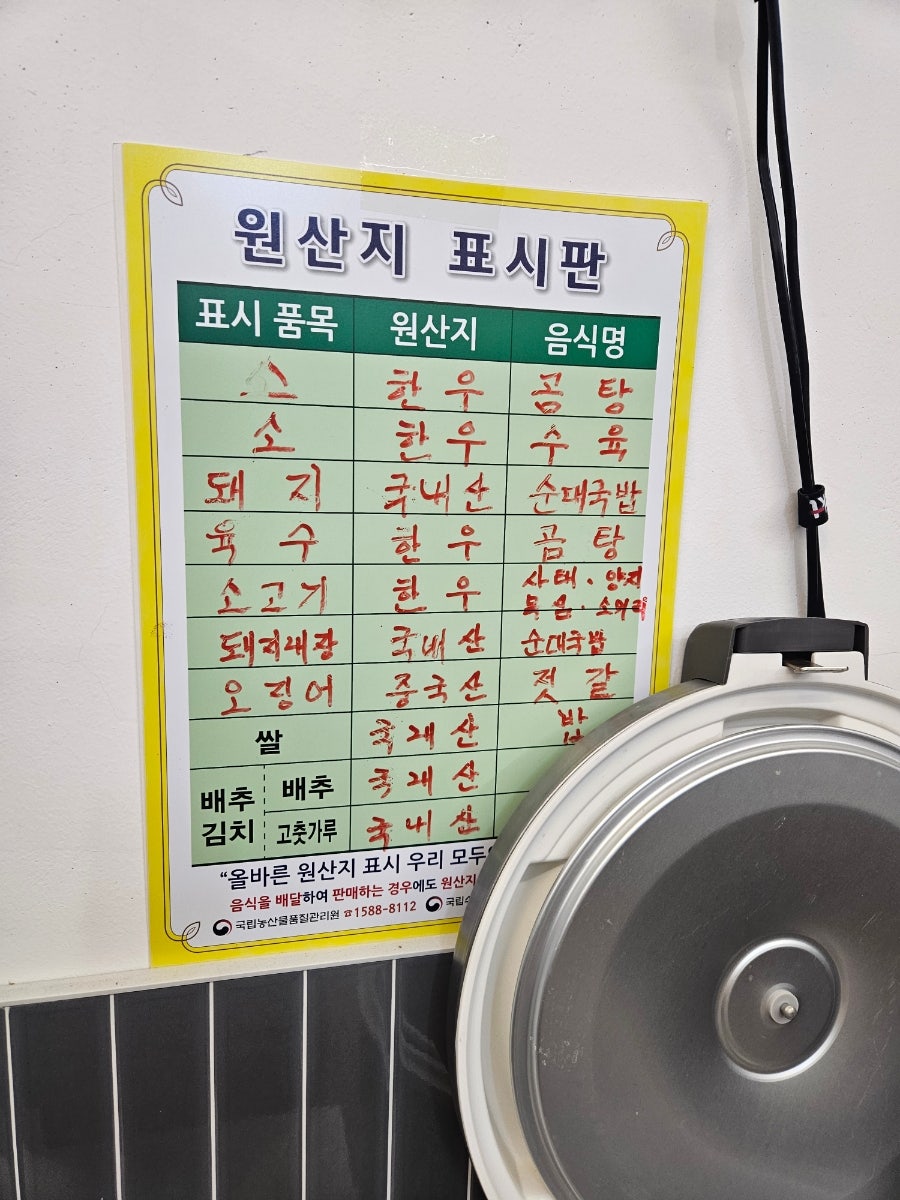 원산지 표시판
표시 품목 원산지 음식명
소 한우 곰탕
소 한우 수육
돼지 국내산 순대국밥
육수 한우 곰탕
소고기 한우 사태·양지
목심·소머리
돼지내장 국내산 순대국밥
오징어 중국산 젓갈
쌀 국내산 밥
배추김치 배추 국내산
고춧가루 국내산
"올바른 원산지 표시 우리 모두
음식을 배달하여 판매하는 경우에도 원산지
국립농산물품질관리원 ☎1588-8112 국립